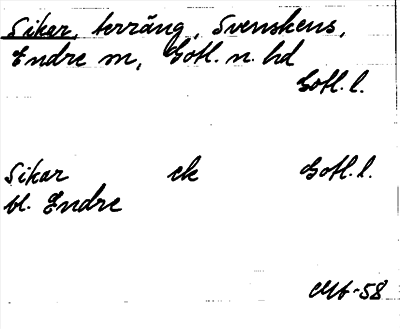 Sikar, terräng, Svenskens,
Endre sn, Gotl. n. hd
Gotl. l.
Sikar ek Gotl. l.
bl. Endre
-58